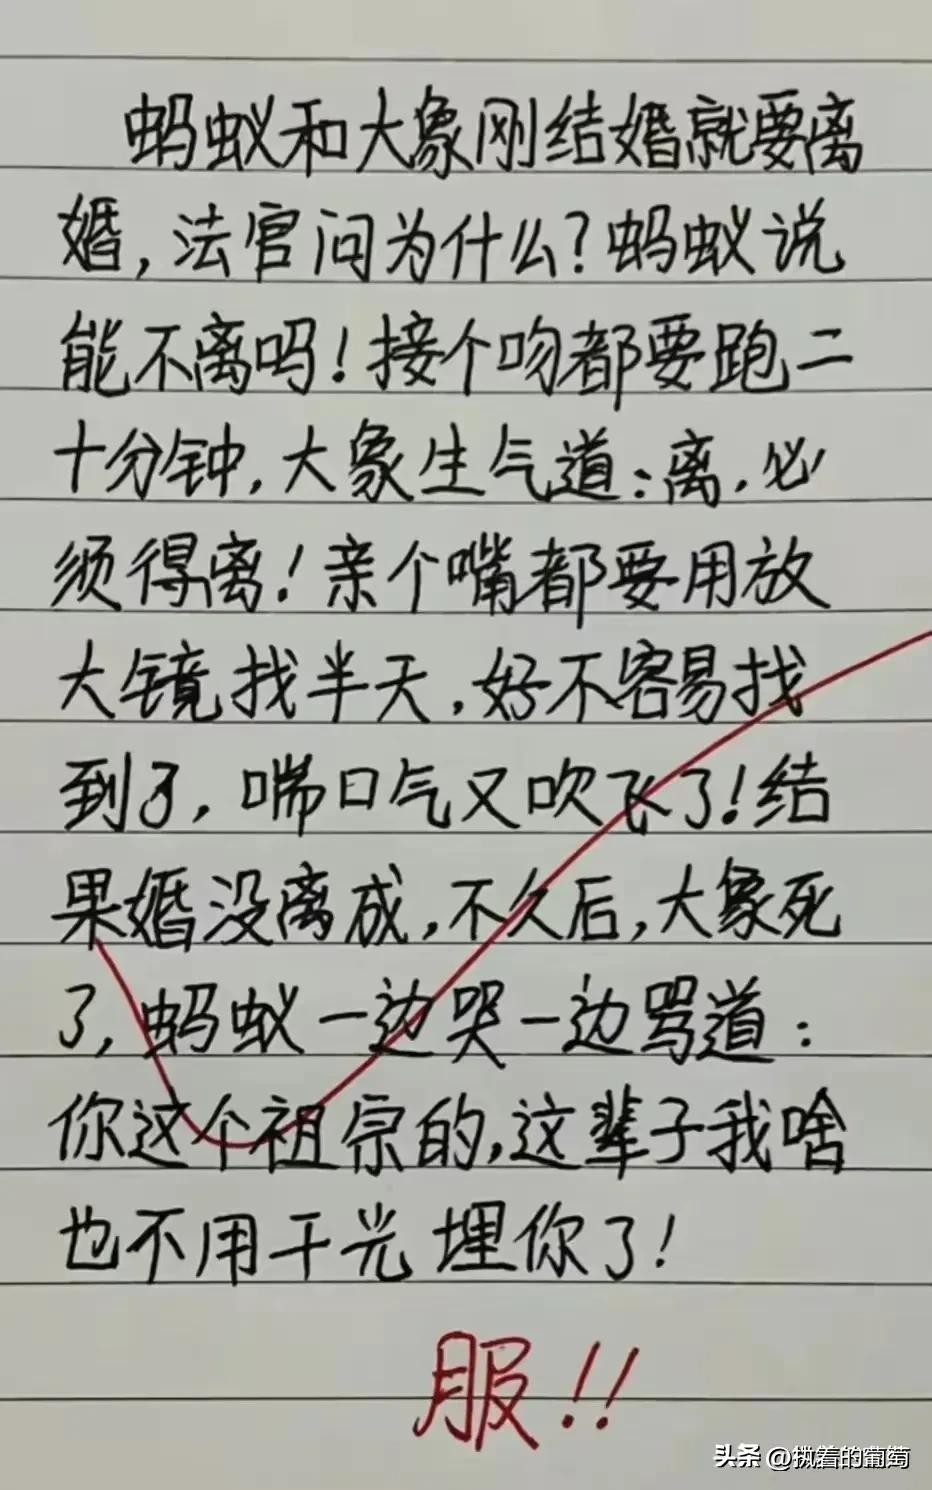 蚂蚁和大象刚结婚就要离
婚,法官问为什么?蚂蚁说
能不离吗!接个吻都要跑二
十分钟,大象生气道:离.必
须得离!亲个嘴都要用放
大镜找半天,好不容易找
到了,喘口气又吹飞了!结
果婚没离成,不久后,大象死
了,蚂蚁一边哭一边骂道:
你这个祖宗的,这辈子我啥
也不用干光埋你了!
服!!
头条 @执着的葡萄